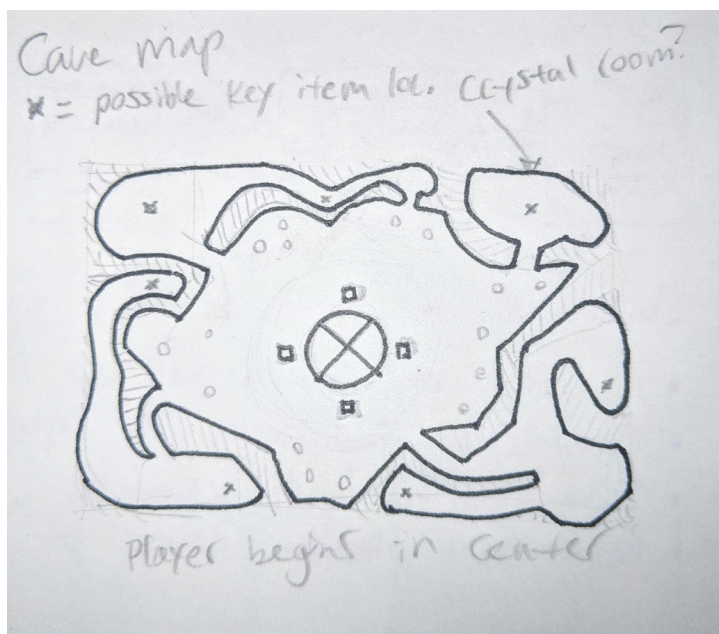 Cave map
x = possible key item loc. Crystal room?
Player begins in center